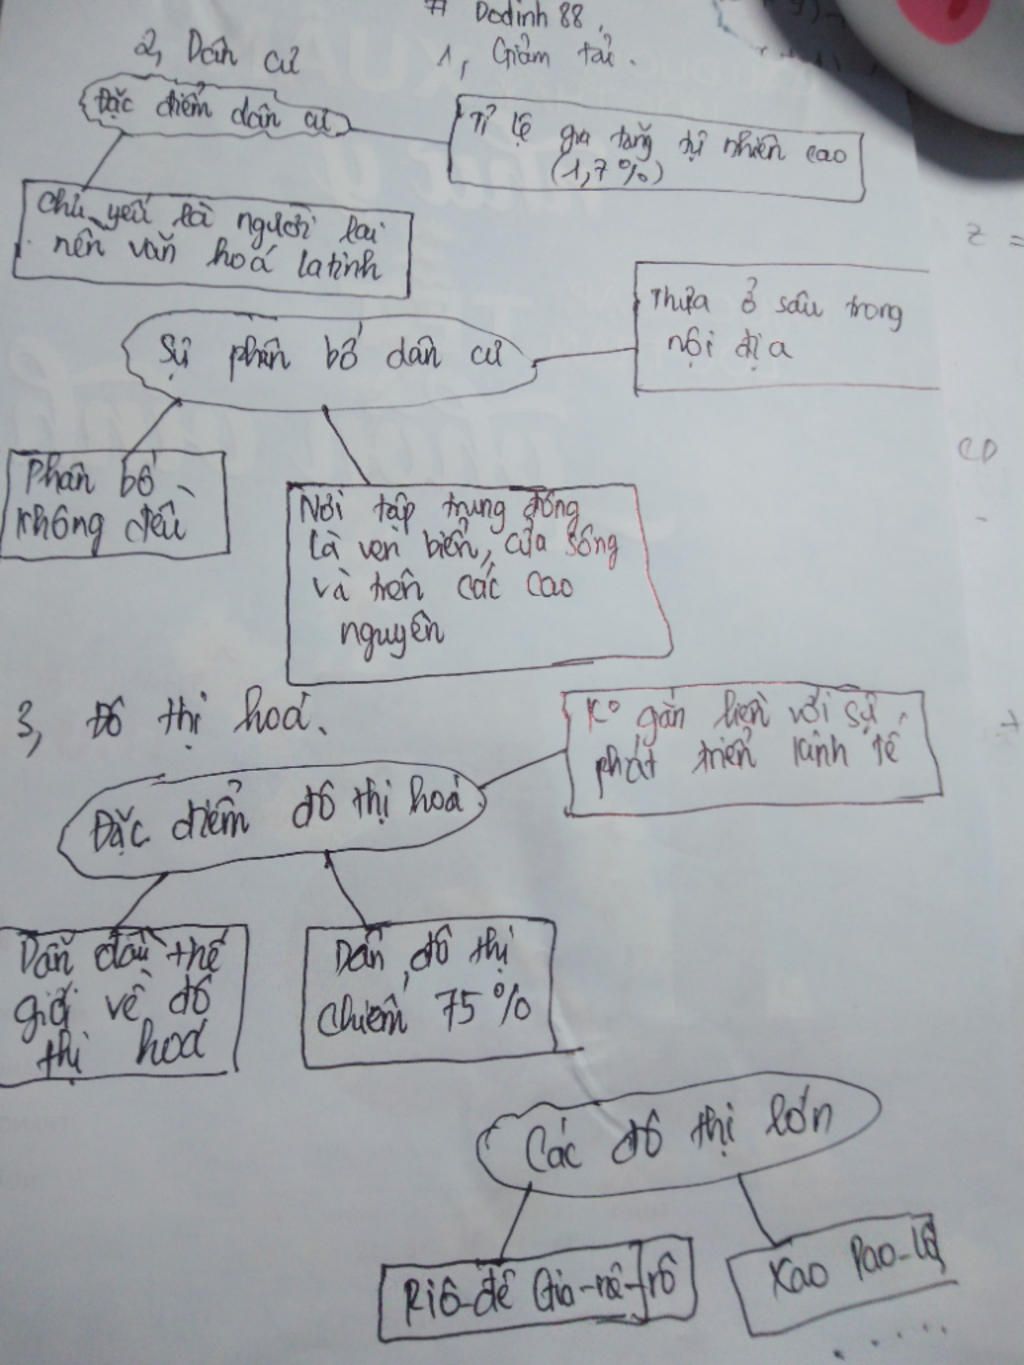 # Dodinh 88
1, Giảm tải.
2, Dân cư
Đặc điểm dân cư
Tỉ lệ gia tăng tự nhiên cao
(1,7%)
Chủ yếu là người lai
nền văn hoá latinh
Sự phân bố dân cư
Thưa ở sâu trong
nội địa
Phân bố
không đều
Nơi tập trung đông
là ven biển, cửa sông
và trên các cao
nguyên
3, Đô thị hoá.
Ko gắn liền với sự
phát triển kinh tế
Đặc điểm đô thị hoá
Dẫn đầu thế
giới về đô
thị hoá
Dân đô thị
chiếm 75%
Các đô thị lớn
Riô-đê Gia-nê-rô
Xao Pao-lô
.....
z =
CD